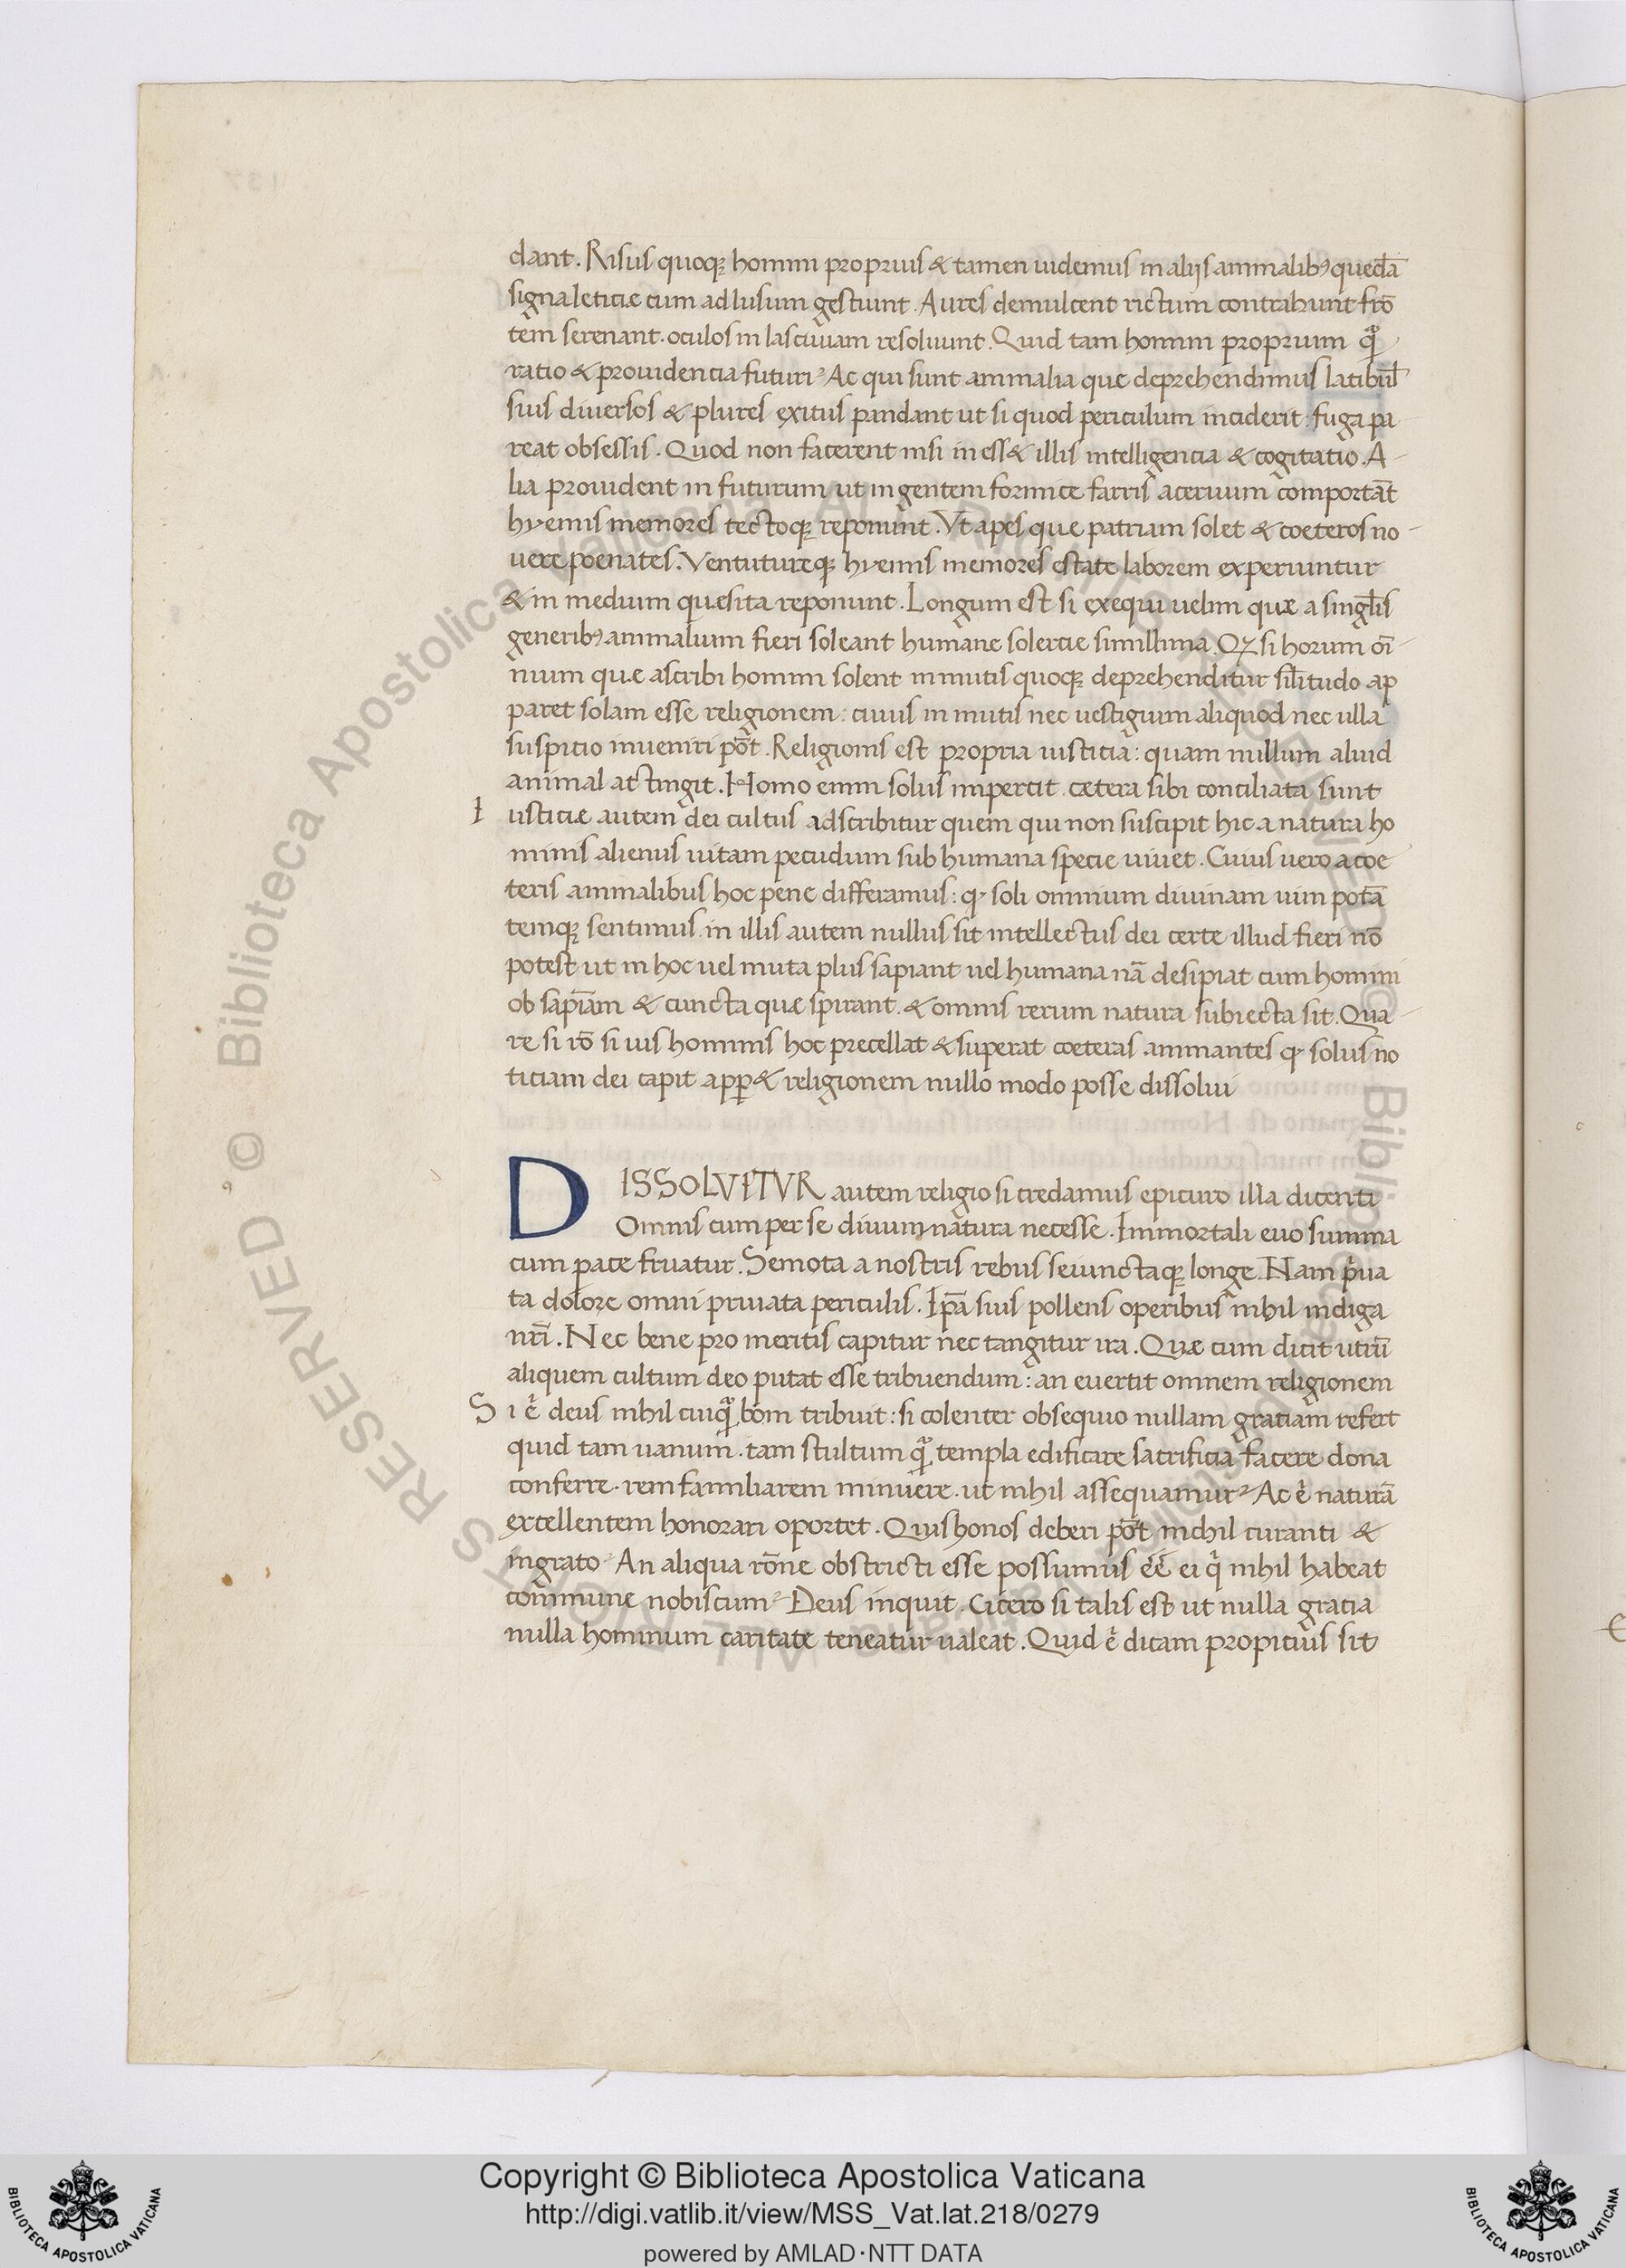 dant. Risus quoqꝫ homini proprius & tamen uidemus in aliis animalibꝰ quedã
signa leticiæ cum ad lusum gestiunt. Aures demulcent rictum contrahunt frõ
tem serenant. oculos in lasciuiam resoluunt. Quid tam homini proprium qᷓ
ratio & prouidencia futuri? Ac qui sunt animalia que deprehendimus latibul̃
suis diuersos & plures exitus pandant ut si quod periculum inciderit: fuga pa
reat obsessis. Quod non facerent nisi iness& illis intelligencia & cogitatio. A
lia prouident in futurum ut ingentem formice farris aceruum comportãt
hyemis memores tectoqꝫ reponunt. Vt apes que patriam solet & coeteros no
uere poenates. Ventutureqꝫ hyemis memores estate laborem experiuntur
& in medium quesita reponunt. Longum est si exequi uelim quæ a singl̃is
generibꝰ animalium fieri soleant humane solercie simillima. Qꝫ si horum oĩ
nium quæ ascribi homini solent in mutis quoqꝫ deprehenditur sil̃itudo ap
paret solam esse religionem: cuius in mutis nec uestigium aliquod nec ulla
suspitio inueniri põt. Religionis est propria iusticia: quam nullum aliud
animal attingit. Homo enim solus impertit. cætera sibi conciliata sunt
I usticiæ autem dei cultus adscribitur quem qui non suscipit hic a natura ho
minis alienus uitam pecudum sub humana specie uiuet. Cuius uero a coe
teris animalibus hoc pene differamus: qꝫ soli omnium diuinam uim potã
temqꝫ sentimus in illis autem nullus sit intellectus dei certe illud fieri nõ
potest ut in hoc uel muta plus sapiant uel humana nã desipiat cum homini
ob sapiãm & cuncta quæ spirant. & omnis rerum natura subiecta sit. Qua
re si rõ si uis hominis hoc precellat & superat coeteras animantes qꝫ solus no
ticiam dei capit app& religionem nullo modo posse dissolui
DISSOLVITVR autem religio si credamus epicuro illa dicenti
Omnis cum per se diuum natura necesse. Immortali euo summa
cum pace fruatur. Semota a nostris rebus seiunctaqꝫ longe. Nam p̃iua
ta dolore omni priuata periculis. Ip̃a suis pollens operibus nihil indiga
nr̃i. Nec bene pro meritis capitur nec tangitur ira. Quæ cum dicit utrũ
aliquem cultum deo putat esse tribuendum: an euertit omnem religionem
S i ẽ deus nihil cuiqᷓ boni tribuit: si colenter obsequio nullam gratiam refert
quid tam uanum. tam stultum qᷓ templa edificare sacrificia facere dona
conferre. rem familiarem minuere. ut nihil assequamur? Ac ẽ naturã
excellentem honorari oportet. Quis honos deberi põt nichil curanti &
ingrato? An aliqua rõne obstricti esse possumus ẽẽ ei qi nihil habeat
commune nobiscum? Deus inquit. Cicero si talis est ut nulla gratia
nulla hominum caritate teneatur ualeat. Quid ẽ dicam propitius sit
Copyright © Biblioteca Apostolica Vaticana
http://digi.vatlib.it/view/MSS_Vat.lat.218/0279
powered by AMLAD·NTT DATA
BIBLIOTECA APOSTOLICA VATICANA
BIBLIOTECA APOSTOLICA VATICANA